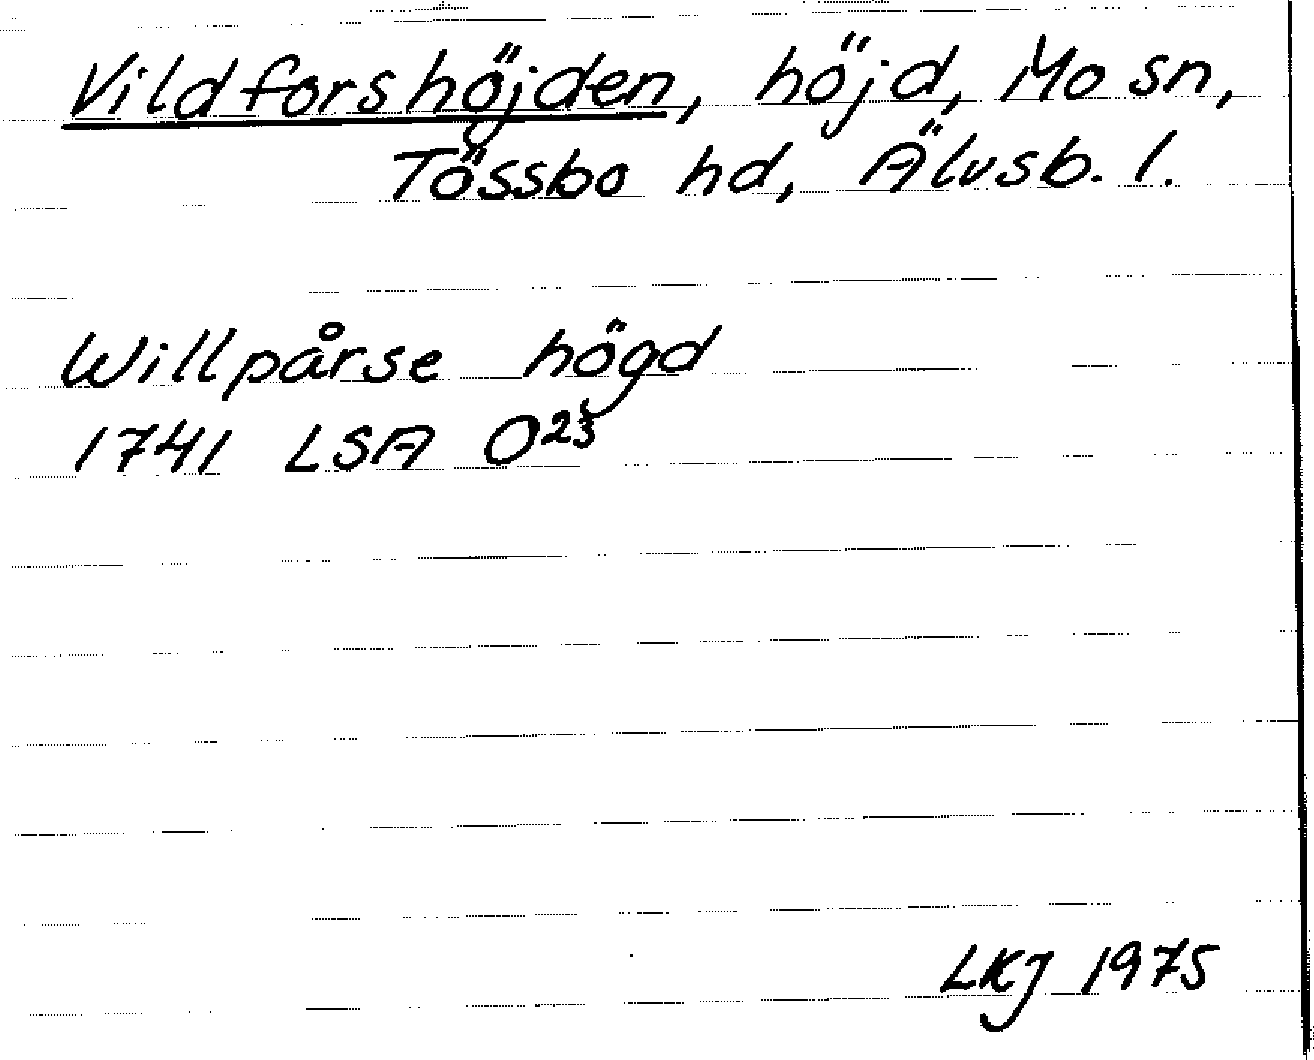 Vildforshöjden, höjd, Mo sn,
Tössbo hd, Älvsb. l.
Willpårse högd
1741 LSA O23
LKJ 1975